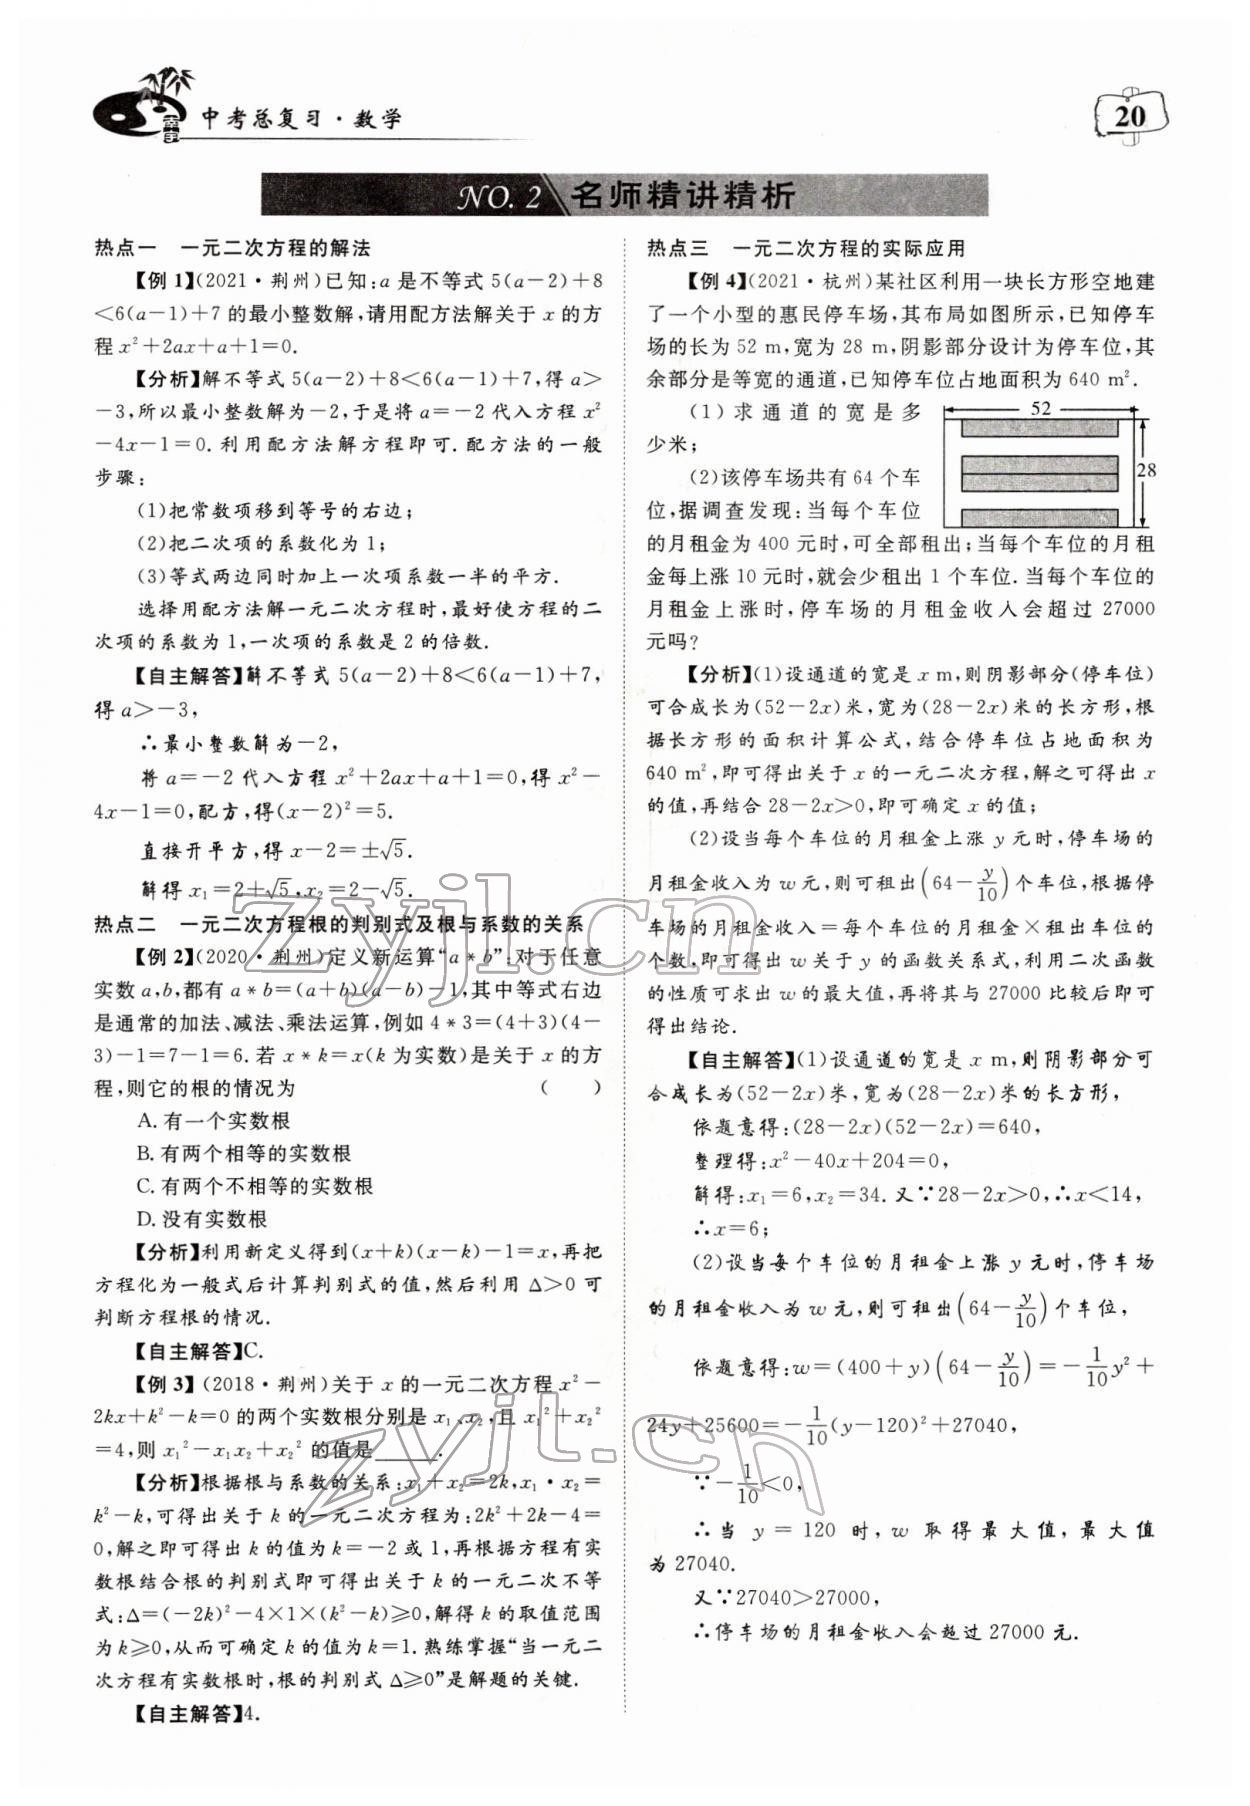 中考总复习·数学
20
NO.2 名师精讲精析
热点一 一元二次方程的解法
【例1】(2021·荆州)已知:a是不等式5(a-2)+8
<6(a-1)+7的最小整数解,请用配方法解关于x的方
程x²+2ax+a+1=0.
【分析】解不等式5(a-2)+8<6(a-1)+7,得a>
-3,所以最小整数解为-2,于是将a=-2代入方程x²
-4x-1=0.利用配方法解方程即可.配方法的一般
步骤:
(1)把常数项移到等号的右边;
(2)把二次项的系数化为1;
(3)等式两边同时加上一次项系数一半的平方.
选择用配方法解一元二次方程时,最好使方程的二
次项的系数为1,一次项的系数是2的倍数.
【自主解答】解不等式5(a-2)+8<6(a-1)+7,
得a>-3,
∴最小整数解为-2,
将a=-2代入方程x²+2ax+a+1=0,得x²-
4x-1=0,配方,得(x-2)²=5.
直接开平方,得x-2=±√5.
解得x₁=2+√5,x₂=2-√5.
热点二 一元二次方程根的判别式及根与系数的关系
【例2】(2020·荆州)定义新运算“a*b”:对于任意
实数a,b,都有a*b=(a+b)(a-b)-1,其中等式右边
是通常的加法、减法、乘法运算,例如4*3=(4+3)(4-
3)-1=7-1=6.若x*k=x(k为实数)是关于x的方
程,则它的根的情况为 ( )
A.有一个实数根
B.有两个相等的实数根
C.有两个不相等的实数根
D.没有实数根
【分析】利用新定义得到(x+k)(x-k)-1=x,再把
方程化为一般式后计算判别式的值,然后利用Δ>0可
判断方程根的情况.
【自主解答】C.
【例3】(2018·荆州)关于x的一元二次方程x²-
2kx+k²-k=0的两个实数根分别是x₁、x₂,且x₁²+x₂²
=4,则x₁²-x₁x₂+x₂²的值是____.
【分析】根据根与系数的关系:x₁+x₂=2k,x₁·x₂=
k²-k,可得出关于k的一元二次方程为:2k²+2k-4=
0,解之即可得出k的值为k=-2或1,再根据方程有实
数根结合根的判别式即可得出关于k的一元二次不等
式:Δ=(-2k)²-4×1×(k²-k)≥0,解得k的取值范围
为k≥0,从而可确定k的值为k=1.熟练掌握“当一元二
次方程有实数根时,根的判别式Δ≥0”是解题的关键.
【自主解答】4.
热点三 一元二次方程的实际应用
【例4】(2021·杭州)某社区利用一块长方形空地建
了一个小型的惠民停车场,其布局如图所示,已知停车
场的长为52 m,宽为28 m,阴影部分设计为停车位,其
余部分是等宽的通道,已知停车位占地面积为640 m².
(1)求通道的宽是多
少米;
(2)该停车场共有64个车
位,据调查发现:当每个车位
52
28
的月租金为400元时,可全部租出;当每个车位的月租
金每上涨10元时,就会少租出1个车位.当每个车位的
月租金上涨时,停车场的月租金收入会超过27000
元吗?
【分析】(1)设通道的宽是x m,则阴影部分(停车位)
可合成长为(52-2x)米,宽为(28-2x)米的长方形,根
据长方形的面积计算公式,结合停车位占地面积为
640 m²,即可得出关于x的一元二次方程,解之可得出x
的值,再结合28-2x>0,即可确定x的值;
(2)设当每个车位的月租金上涨y元时,停车场的
月租金收入为w元,则可租出(64-y/10)个车位,根据停
车场的月租金收入=每个车位的月租金×租出车位的
个数,即可得出w关于y的函数关系式,利用二次函数
的性质可求出w的最大值,再将其与27000比较后即可
得出结论.
【自主解答】(1)设通道的宽是x m,则阴影部分可
合成长为(52-2x)米,宽为(28-2x)米的长方形,
依题意得:(28-2x)(52-2x)=640,
整理得:x²-40x+204=0,
解得:x₁=6,x₂=34.又∵28-2x>0,∴x<14,
∴x=6;
(2)设当每个车位的月租金上涨y元时,停车场
的月租金收入为w元,则可租出(64-y/10)个车位,
依题意得:w=(400+y)(64-y/10)=-1/10y²+
24y+25600=-1/10(y-120)²+27040,
∵-1/10<0,
∴当y=120时,w取得最大值,最大值
为27040.
又∵27040>27000,
∴停车场的月租金收入会超过27000元.
zyjl.cn
zyjl.cn